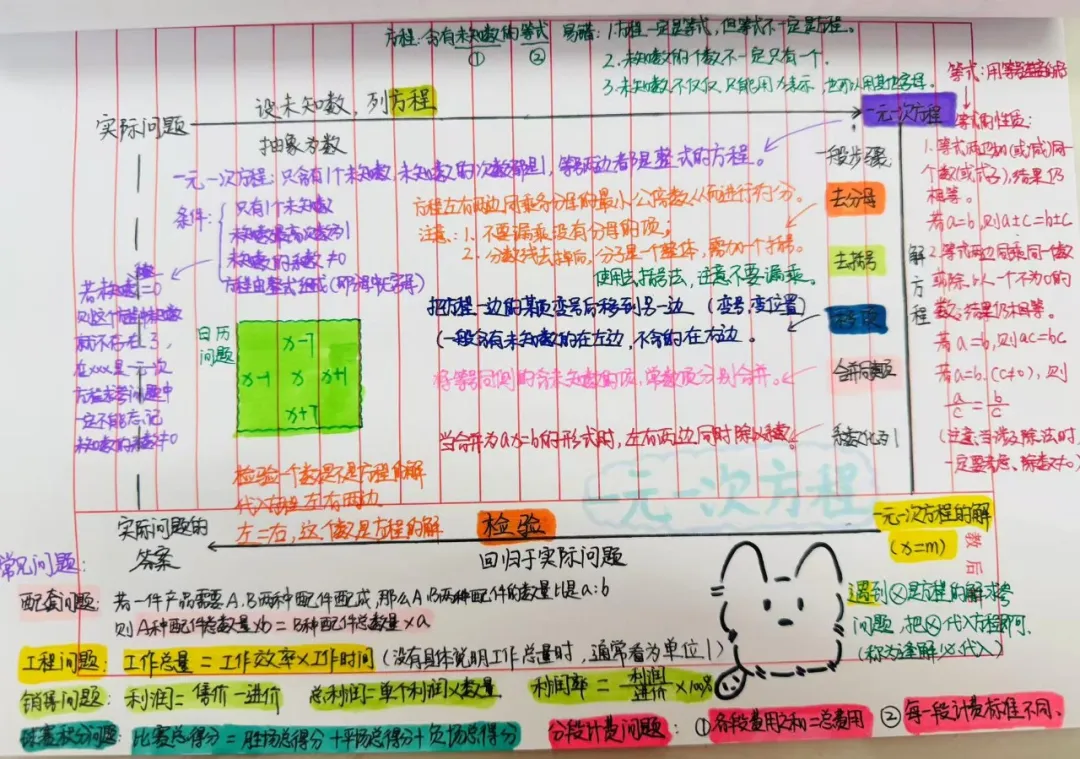 方程：含有未知数的等式
① ②
易错：1.方程一定是等式，但等式不一定是方程。
2.未知数的个数不一定只有一个.
3.未知数不仅仅只能用x表示，也可以用其他字母。
设未知数，列方程
实际问题
抽象为数
一元一次方程
一元一次方程：只含有1个未知数，未知数的次数都是1，等号两边都是整式的方程。
条件：
只有1个未知数
未知数最高次数为1
未知数的系数≠0
方程由整式组成
若系数=0
则这个方程未知数
就不存在了，
在xxx是一元一次
方程求参问题中
一定不能忘记
未知数的系数≠0
日历
问题
x-7
x-1 x x+1
x+7
一般步骤：
去分母
方程左右两边同乘各分母的最小公倍数从而进行约分。
注意：1.不要漏乘没有分母的项；
2.分数线去掉后，分子是一个整体，需加一个括号。
去括号
使用去括号法，注意不要漏乘。
移项
把方程一边的某项变号后移到另一边（变号，变位置）
（一般含有未知数的在左边，不含的在右边。
合并同类项
将等号同侧的含未知数的项，常数项分别合并。
系数化为1
当合并为ax=b的形式时，左右两边同时除以系数。
解方程
等式的性质：
1.等式两边加(或减)同一
个数(或式子)，结果仍
相等。
若a=b，则a±c=b±c
2.等式两边同乘同一个数
或除以一个不为0的
数，结果仍相等。
若a=b，则ac=bc
若a=b.(c≠0)，则
a/c=b/c
(注意：当涉及除法时，
一定要考虑，除数≠0)
一元一次方程
检验一个数是不是方程的解
代入方程左右两边
左=右，这个数是方程的解
实际问题的
答案
检验
回归于实际问题
一元一次方程的解
(x=m)
遇到x是方程的解求参
问题，把x代入方程即可.
(称为逢解必代入)
常见问题：
配套问题：若一件产品需要A.B两种配件配成，那么A.B两种配件的数量比是a:b
则A种配件总数量×b=B种配件总数量×a
工程问题：工作总量=工作效率×工作时间（没有具体说明工作总量时，通常看为单位1）
销售问题：利润=售价-进价 总利润=单个利润×数量 利润率=利润/进价×100%
球赛积分问题：比赛总得分=胜场总得分+平场总得分+负场总得分
分段计费问题：①各段费用之和=总费用 ②每一段计费标准不同、